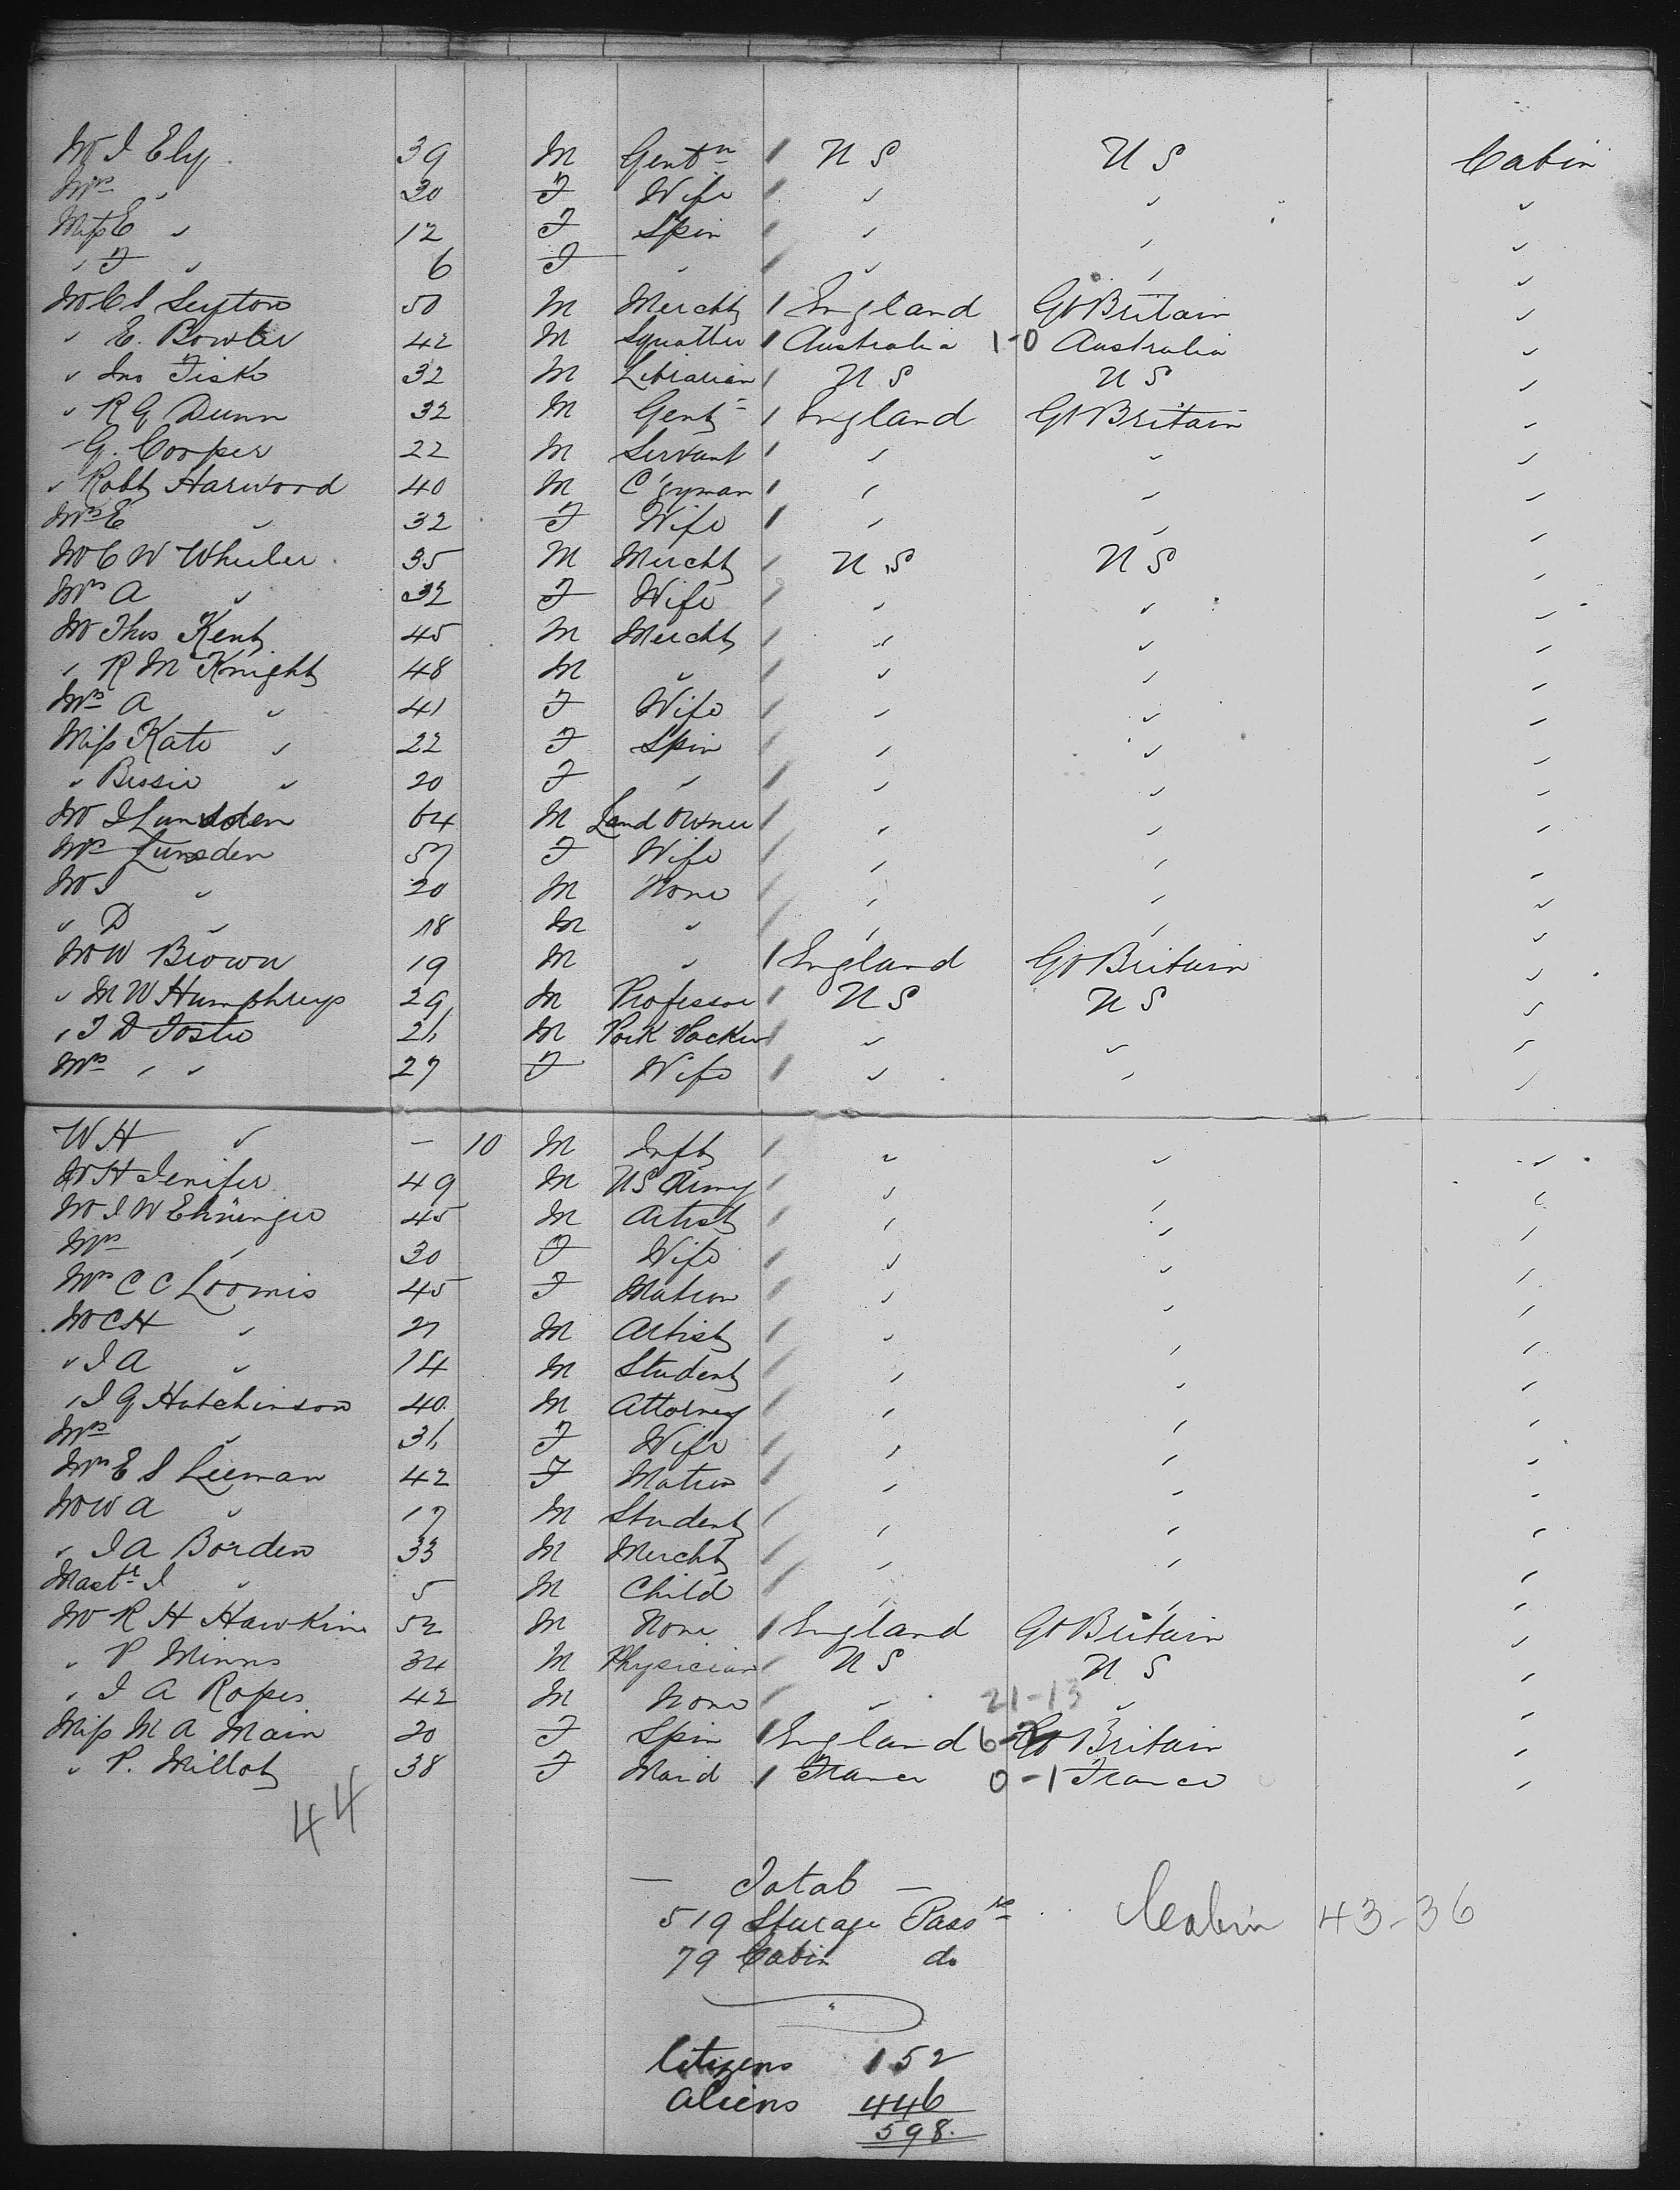 Mr J Ely 39 M Gentn 1 U S U S Cabin
Mrs " 30 F Wife 1 " " "
Miss E " 12 F Spin 1 " " "
" F " 6 F " 1 " " "
Mr C S Seyton 50 M Mercht 1 England Gt Britain "
" E. Bowler 42 M Squatter 1 Australia 1-0 Australia "
" Jno Fiske 32 M Librarian 1 U S U S "
" R G Dunn 32 M Gentn 1 England Gt Britain "
" G. Cooper 22 M Servant 1 " " "
" Robt Harwood 40 M C'gyman 1 " " "
Mrs E " 32 F Wife 1 " " "
Mr C W Wheeler 35 M Mercht 1 U S U S "
Mrs A " 32 F Wife 1 " " "
Mr Thos Kent 45 M Mercht 1 " " "
" R M Knight 48 M " 1 " " "
Mrs A " 41 F Wife 1 " " "
Miss Kate " 22 F Spin 1 " " "
" Bessie " 20 F " 1 " " "
Mr J Lumsden 64 M Land Owner 1 " " "
Mrs Lumsden 57 F Wife 1 " " "
Mr J " 20 M None 1 " " "
" D " 18 M " 1 " " "
Mr W Brown 19 M " 1 England Gt Britain "
" M W Humphreys 29 M Professor 1 U S U S "
" T D Foster 26 M Pork Packer 1 " " "
Mrs " " 27 F Wife 1 " " "
W H " - 10 M Inft 1 " " "
W H Jenifer 49 M US Army 1 " " "
Mr J W Ehninger 45 M Artist 1 " " "
Mrs " 30 F Wife 1 " " "
Mrs C C Loomis 45 F Matron 1 " " "
Mr C H " 27 M Artist 1 " " "
" J A " 14 M Student 1 " " "
" J G Hutchinson 40 M Attorney 1 " " "
Mrs " 36 F Wife 1 " " "
Mrs E S Leeman 42 F Matron 1 " " "
Mr W A " 17 M Student 1 " " "
" J A Borden 33 M Mercht 1 " " "
Mastr J " 5 M Child 1 " " "
Mr R H Hawkins 52 M None 1 England Gt Britain "
" P Minns 34 M Physician 1 U S U S "
" J A Ropes 42 M None 1 " 21-13 " "
Miss M A Main 20 F Spin 1 England Gt Britain "
" P. Millot 38 F Maid 1 France 0-1 France "
44
— Total —
519 Steerage Passrs Cabin 43-36
79 Cabin do
Citizens 152
Aliens 446
598.